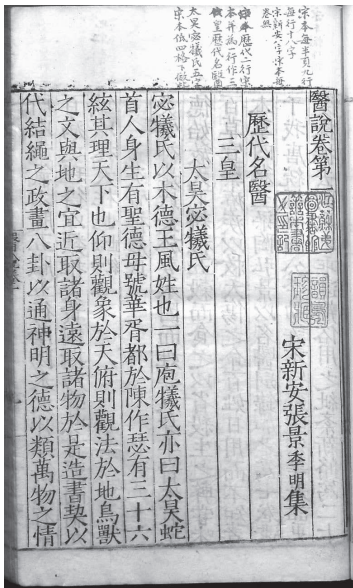 宋本每半頁九行
每行十八字
宋新安字宋本每
卷無
宋本歷代二行宋
本并為一行作三
皇歷代名醫
太昊宓犧氏五字
宋本低四格下倣此
醫說卷第一
宋新安張景季明集
歷代名醫
三皇
太昊宓犧氏
宓犧氏以木德王風姓也一曰庖犧氏亦曰太昊蛇
首人身生有聖德母號華胥都於陳作瑟有三十六
絃其理天下也仰則觀象於天俯則觀法於地鳥獸
之文與地之宜近取諸身遠取諸物於是造書契以
代結繩之政畫八卦以通神明之德以類萬物之情